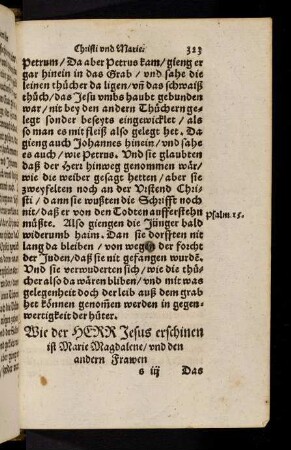 Christi vnd Marie. 323
Petrum / Da aber Petrus kam / gieng er
gar hinein in das Grab / vnd sahe die
leinen thücher da ligen / vñ das schwaiß
thůch / das Jesu vmbs haubt gebunden
war / nit bey den andern Thüchern ge-
legt sonder beseyts eingewicklet / als
so man es mit fleiß also gelegt het. Da
gieng auch Johannes hinein / vnd sahe
es auch / wie Petrus. Vnd sie glaubten
daß der Herr hinweg genommen wår /
wie die weiber gesagt hetten / aber sie
zweyfelten noch an der Vrstend Chri-
sti / dann sie wußten die Schrifft noch
nit / daß er von den Todten aufferstehn
müßte. Also giengen die Jünger bald
widerumb haim. Dan sie dorfften nit
lang da bleiben / von wegen der forcht
der Juden / daß sie nit gefangen wurdē.
Vnd sie verwunderten sich / wie die thů-
cher also da wåren bliben / vnd mit was
gelegenheit doch der leib auß dem grab
het können genom̃en werden in gegen-
wertigkeit der hüter.
Psalm. 15.
Wie der HERR Jesus erschinen
ist Marie Magdalene / vnd den
andern Frawen
s iij Das